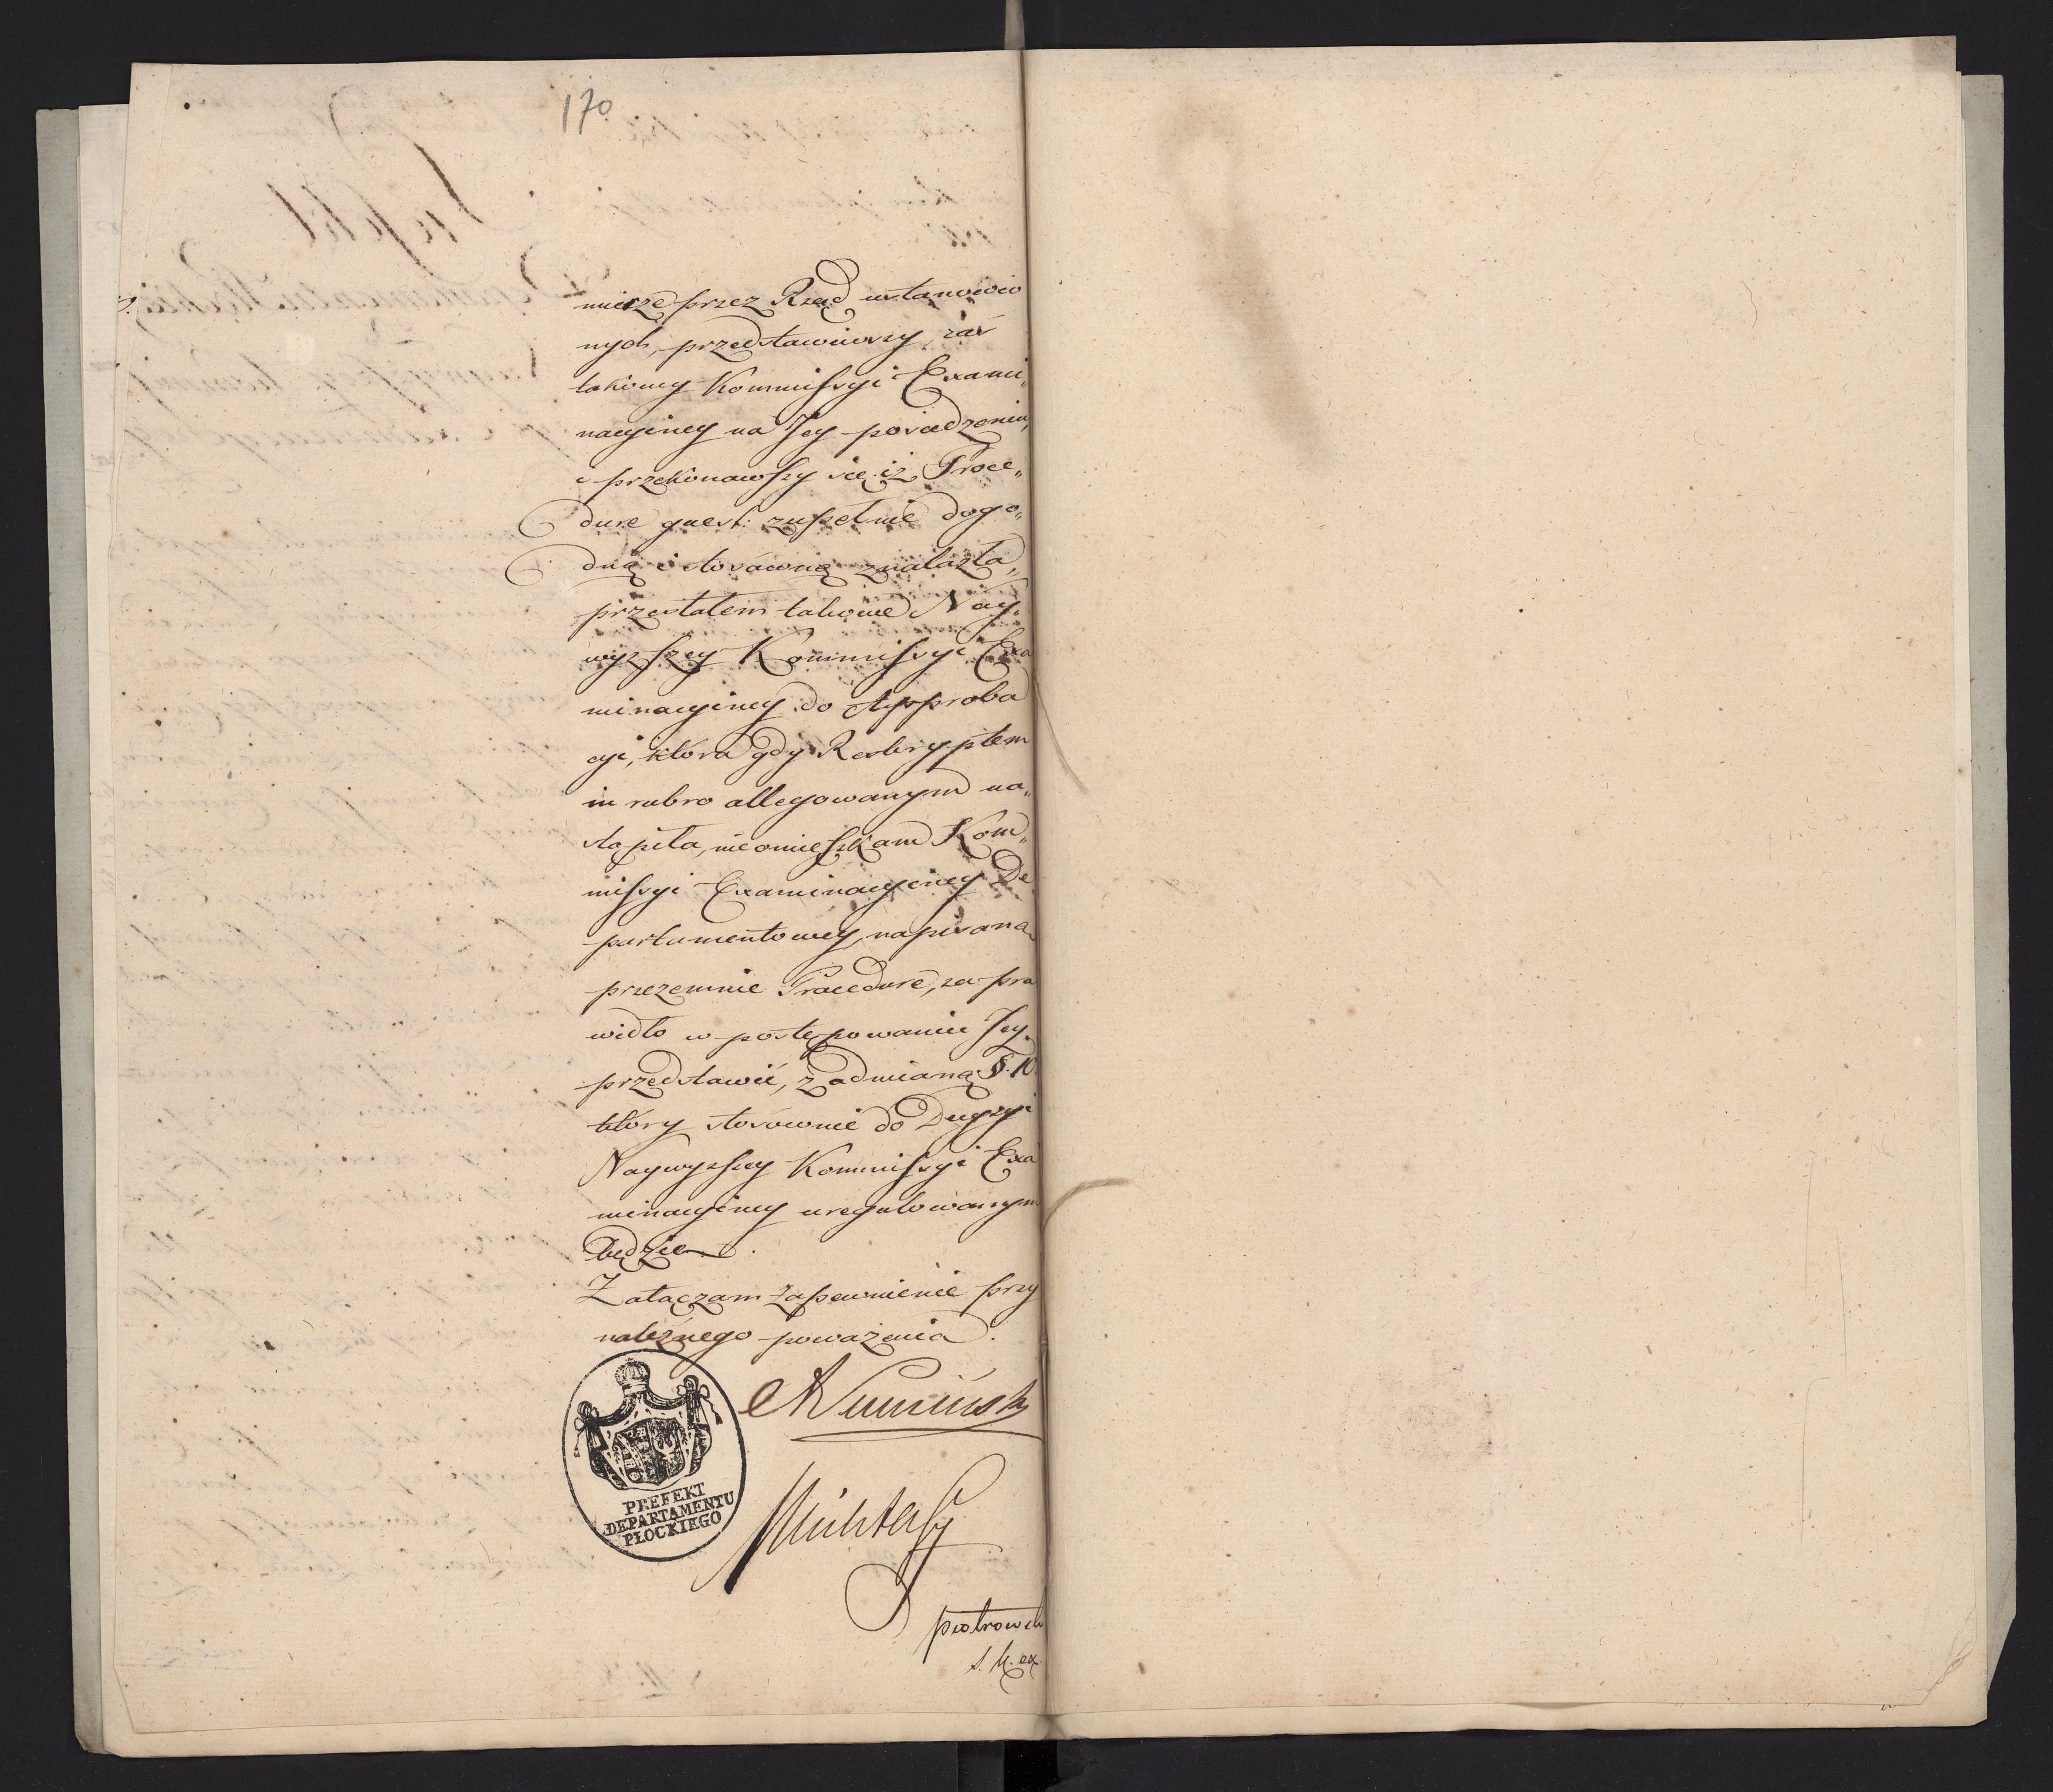 170
mierze przez Rząd ustanowio
nych, przedstawiwszy, zaś
takowy Kommissyi Exami„
nacyiney na Jey posiedzeniu,
i przekonawszy się iż Proce„
durę quest: zupełnie dogo„
dną i stosowną znalazła,
przesłałem takowe Nay„
wyższey Kommissyi Exa
minacyiney do Approba
cyi, która gdy Reskryptem
in rubro allegowanym na„
stąpiła, nieomieszkam Kom„
missyi Examinacyiney De
partamentowey, napisaną
przezemnie Procedurę, za pra
widło w postępowaniu Jey
przedstawić, z odmianą §. 10
który stosownie do Decyzyi
Naywyższey Kommissyi Exa
minacyiney uregulowanym
będzie.
Załączam zapewnienie przy
należnego poważania.
PREFEKT
DEPARTAMENTU
PŁOCKIEGO